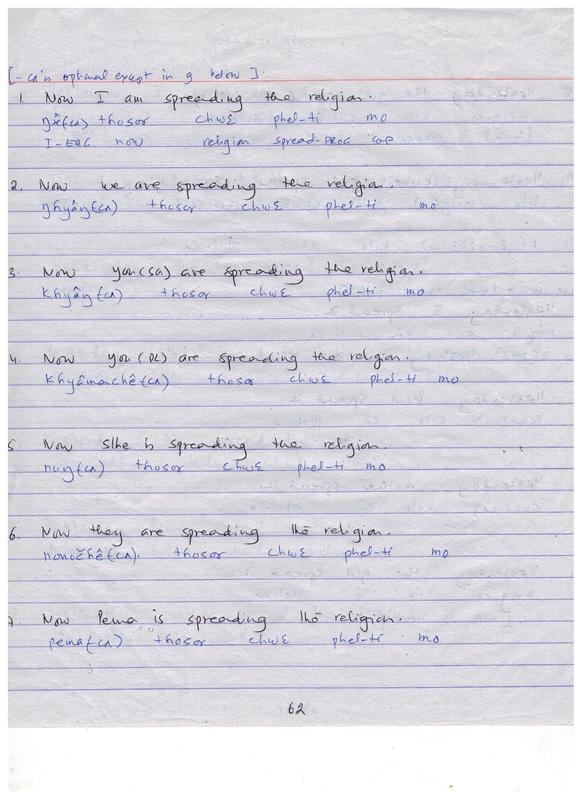 [-cʌ is optional except in 9 below].
1. Now I am spreading the religion.
ŋɤ̂(cʌ) thosor chwɛ phel-ti mo
I-ERG now religion spread-PROG COP
2. Now we are spreading the religion.
ŋhyâŋ(cʌ) thosor chwɛ phel-ti mo
3. Now you (SG) are spreading the religion.
khyâŋ(cʌ) thosor chwɛ phel-ti mo
4. Now you (PL) are spreading the religion.
khyâmachê(cʌ) thosor chwɛ phel-ti mo
5 Now s/he is spreading the religion.
nuŋ(cʌ) thosor chwɛ phel-ti mo
6. Now they are spreading the religion.
nonočhê(cʌ). thosor chwɛ phel-ti mo
7. Now Pema is spreading the religion.
pema(cʌ) thosor chwɛ phel-ti mo
62